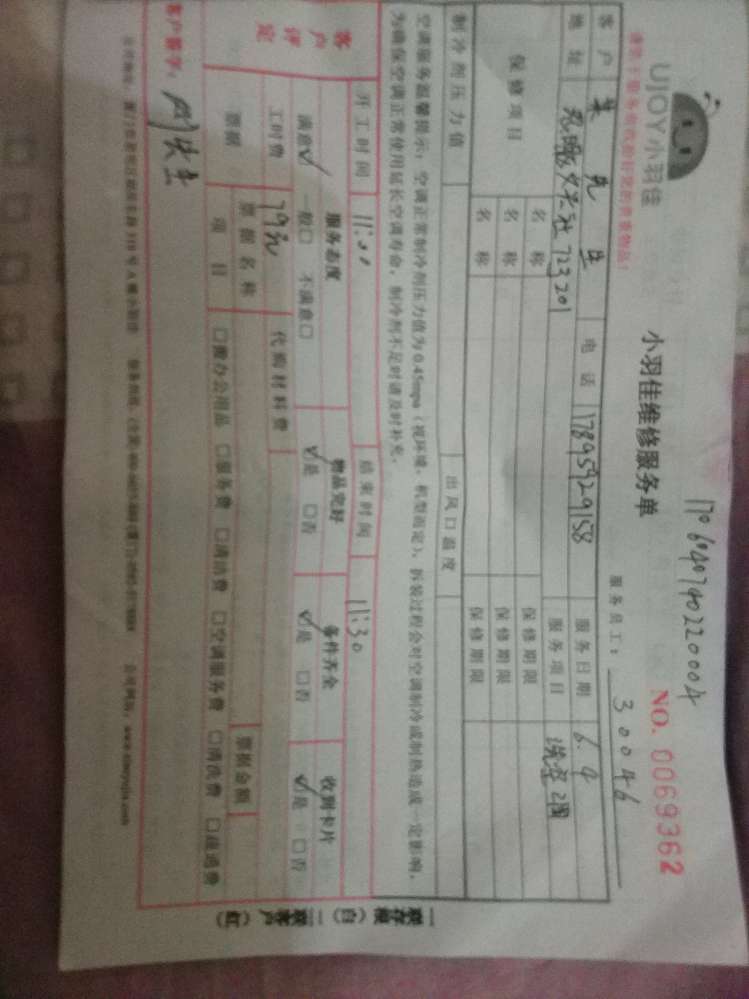 1706040740220004
UJOY小羽佳
小羽佳维修服务单
NO. 0069362
服务员工: 30046
客户 先生 电话 17895929158 服务日期 6.4
地址 723201 服务项目
保修项目 名称 保修期限
名称 保修期限
名称 保修期限
制冷剂压力值 出风口温度
空调服务温馨提示:空调正常制冷剂压力值为0.45mpa(视环境、机型而定),拆装过程会对空调制冷或制热造成一定影响,
为确保空调正常使用延长空调寿命,制冷剂不足时请及时补充。
开工时间 11:00 结束时间 11:30
客户评定 服务态度 物品完好 备件齐全 收到卡片
满意☑ 一般□ 不满意□ ☑是 □否 ☑是 □否 ☑是 □否
工时费 79元 代购材料费
票据 票据名称 票据金额
项目 □办公用品 □服务费 □清洁费 □空调服务费 □清洗费 □疏通费
客户签字:
一联存根(白) 二联客户(红)